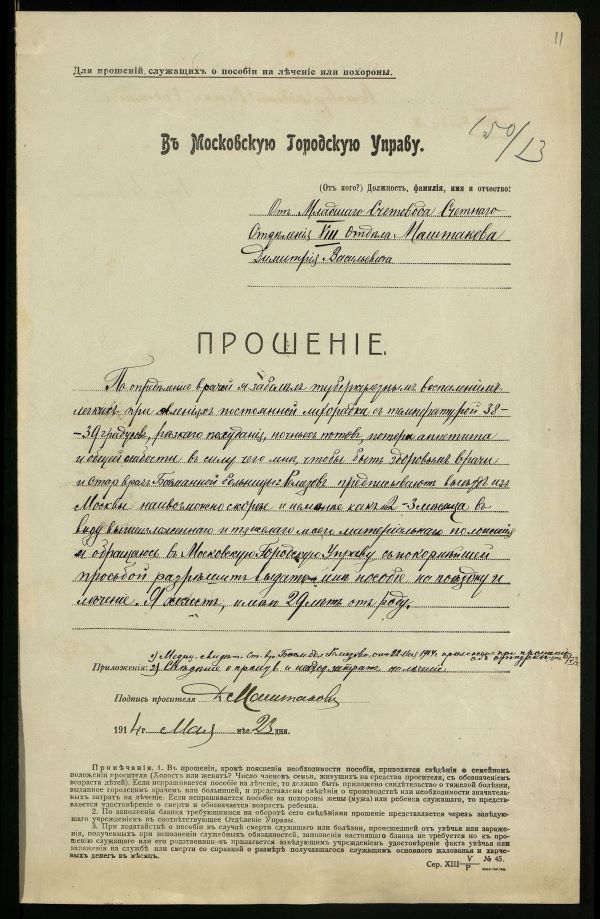 11
Для прошеній служащихъ о пособіи на лѣченіе или похороны.
150/13
Въ Московскую Городскую Управу.
(Отъ кого?) Должность, фамилія, имя и отчество:
Отъ Младшаго Счетовода Счетнаго
Отдѣленія VIII Отдѣла, Маштакова
Димитрія Васильевича
ПРОШЕНІЕ.
По опредѣленію врачей я заболѣлъ туберкулезнымъ воспаленіемъ
легкихъ при явленіяхъ постоянной лихорадки съ температурой 38–
–39 градусовъ, рѣзкаго похуданія, ночныхъ потовъ, потери аппетита
и общей слабости въ силу чего мнѣ, чтобы быть здоровымъ врачи
и Стар. врачъ Басманной больницы предписываютъ выѣздъ изъ
Москвы наивозможно скорѣе и не менѣе какъ 2–3 мѣсяца въ
виду вышеизложеннаго и тяжелаго моего матеріальнаго положенія
я обращаюсь въ Московскую Городскую Управу съ покорнѣйшей
просьбой разрѣшить выдать мнѣ пособіе на поѣздку и
лѣченіе. Я холостъ, имѣю 29 лѣтъ отъ роду.
1) Медиц. свидѣт. Ст. вр. Басм. бол. отъ 22 Мая 1914 приложено при прошеніи
Приложенія: 2) Свѣдѣніе о произв. и затрат. на лѣченіе
Подпись просителя Д Маштаковъ
1914 г. Мая мѣс. 23 дня.
Примѣчанія. 1. Въ прошеніи, кромѣ поясненія необходимости пособія, приводятся свѣдѣнія о семейномъ
положеніи просителя (Холостъ или женатъ? Число членовъ семьи, живущихъ на средства просителя, съ обозначеніемъ
возраста дѣтей). Если испрашивается пособіе на лѣченіе, то должно быть приложено свидѣтельство о тяжелой болѣзни,
выданное городскимъ врачемъ или больницей, и представлены свѣдѣнія о производствѣ или необходимости значитель-
ныхъ затратъ на лѣченіе. Если испрашивается пособіе на похороны жены (мужа) или ребенка служащаго, то предста-
вляется удостовѣреніе о смерти и обозначается возрастъ ребенка.
2. По заполненіи бланка требующимися на оборотѣ сего свѣдѣніями прошеніе представляется черезъ завѣдую-
щаго учрежденіемъ въ соотвѣтствующее Отдѣленіе Управы.
3. При ходатайствѣ о пособіи въ случаѣ смерти служащаго или болѣзни, происшедшей отъ увѣчья или зараже-
нія, полученныхъ при исполненіи служебныхъ обязанностей, заполненія настоящаго бланка не требуется но къ про-
шенію служащаго или его родственниковъ прилагается завѣдующимъ учрежденіемъ удостовѣреніе факта увѣчья или
зараженія на службѣ или смерти со справкой о размѣрѣ получавшагося служащимъ основного жалованья и харче-
выхъ денегъ въ мѣсяцъ.
Сер. XIII V/P № 45.